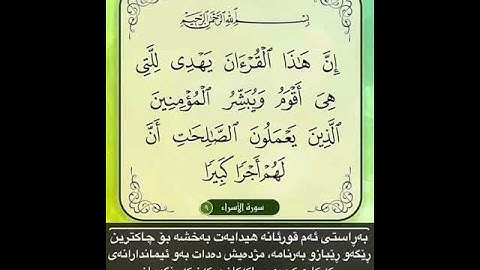 بِسْمِ اللَّهِ الرَّحْمَٰنِ الرَّحِيمِ
إِنَّ هَٰذَا ٱلْقُرْءَانَ يَهْدِى لِلَّتِى
هِىَ أَقْوَمُ وَيُبَشِّرُ ٱلْمُؤْمِنِينَ
ٱلَّذِينَ يَعْمَلُونَ ٱلصَّٰلِحَٰتِ أَنَّ
لَهُمْ أَجْرًا كَبِيرًا
سورة الإسراء ٩
بەڕاستی ئەم قورئانە هیدایەت بەخشە بۆ چاکترین
ڕێگەو ڕێبازو بەرنامە، مژدەیش دەدات بەو ئیماندارانەی